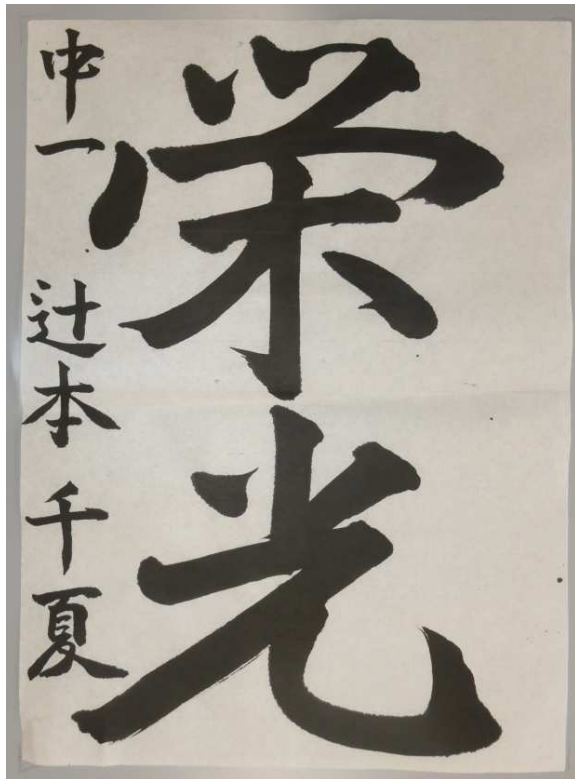 栄光
中一 辻本千夏